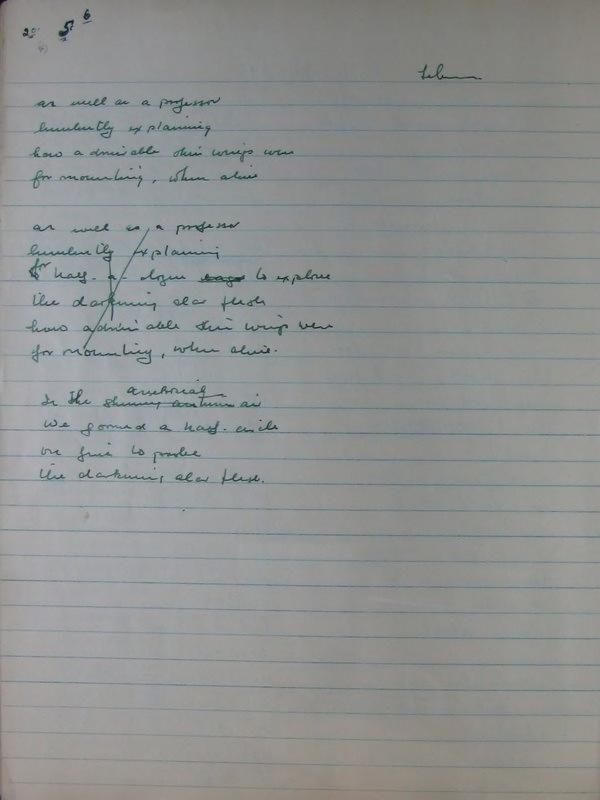 20 5 6
as well as a professor
explaining
how admirable their wings were
for mounting, when alive
as well as a professor
explaining
for half-a-dozen to explore
the darkening alar flesh
how admirable their wings were
for mounting, when alive.
In the air
We formed a half-circle
the darkening alar flesh.